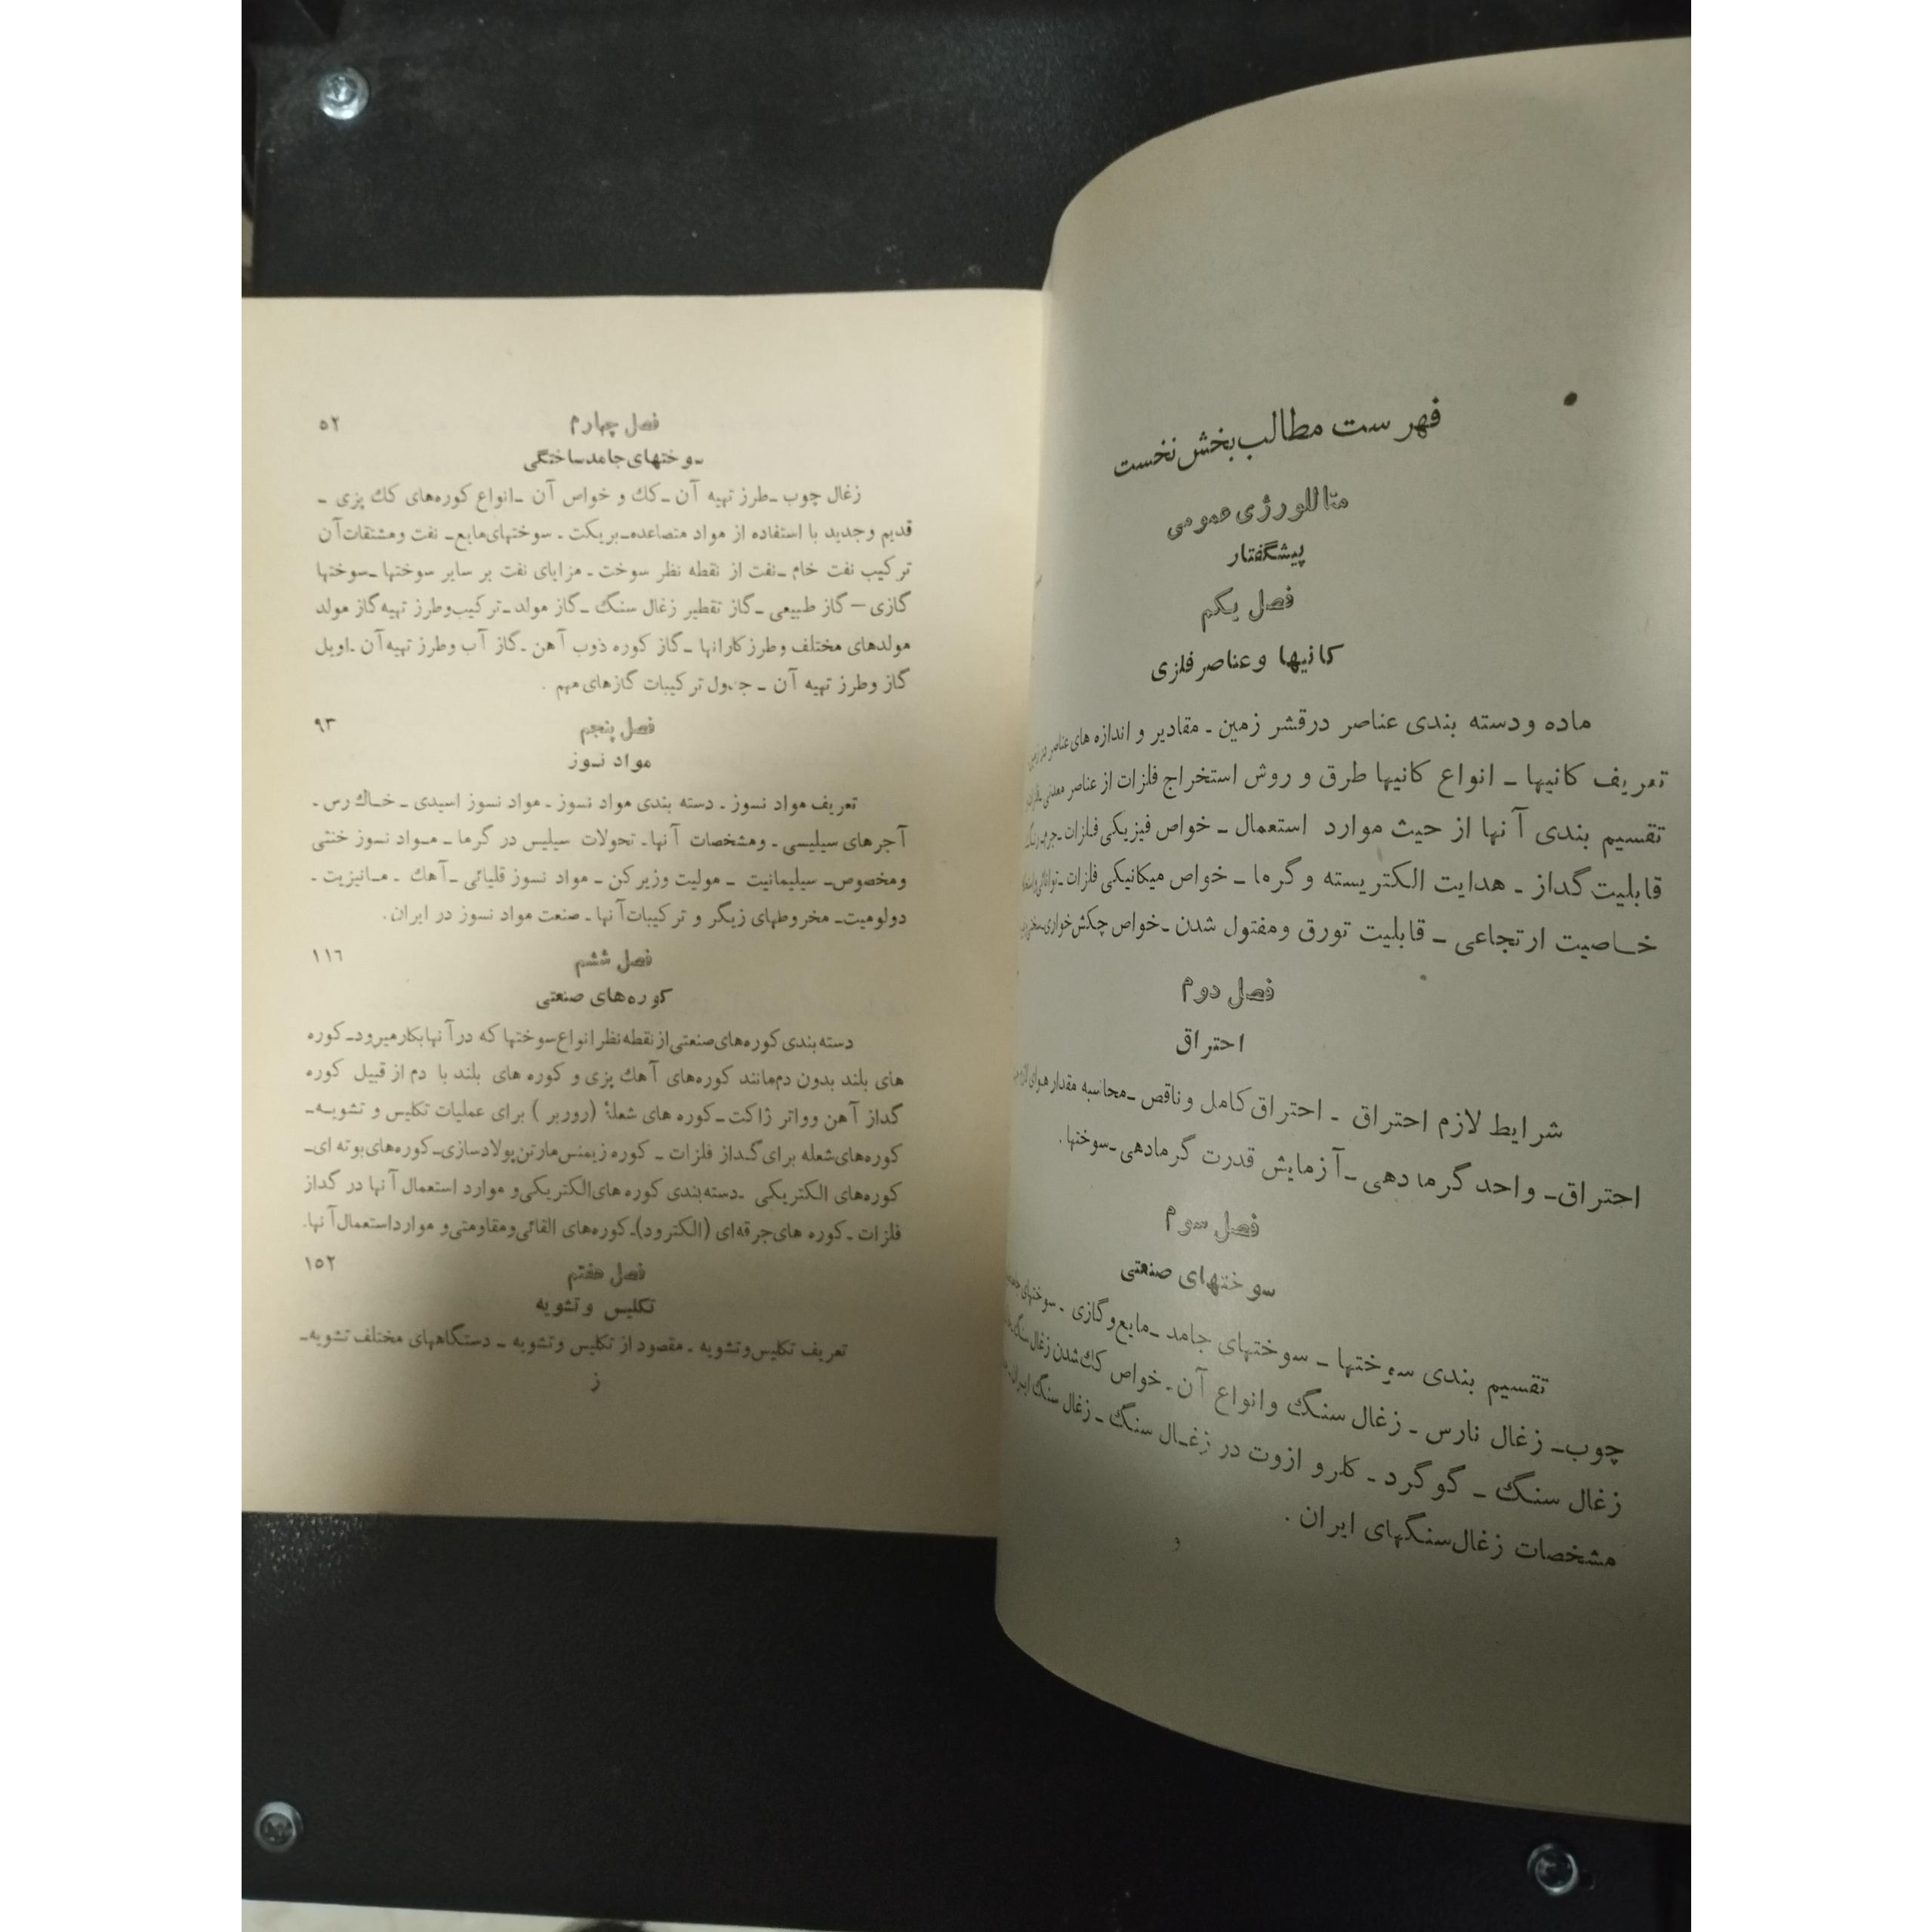 فهرست مطالب بخش نخست
متاللورژی عمومی
پیشگفتار
فصل یکم
کانیها و عناصر فلزی
ماده و دسته بندی عناصر در قشر زمین ـ مقادیر و اندازه های عناصر در زمین
تعریف کانیها ـ انواع کانیها طرق و روش استخراج فلزات از عناصر معدنی ـ
تقسیم بندی آنها از حیث موارد استعمال ـ خواص فیزیکی فلزات ـ جرم ـ رنگ
قابلیت گداز ـ هدایت الکتریسته و گرما ـ خواص میکانیکی فلزات ـ توانائی
خاصیت ارتجاعی ـ قابلیت تورق و مفتول شدن ـ خواص چکش خواری ـ
فصل دوم
احتراق
شرایط لازم احتراق ـ احتراق کامل و ناقص ـ محاسبه مقدار هوای لازم
احتراق ـ واحد گرما دهی ـ آزمایش قدرت گرمادهی ـ سوختها .
فصل سوم
سوختهای صنعتی
تقسیم بندی سوختها ـ سوختهای جامد ـ مایع و گازی ـ سوختهای
چوب ـ زغال نارس ـ زغال سنگ و انواع آن ـ خواص کك شدن زغال سنگ
زغال سنگ ـ گوگرد ـ کلر و ازوت در زغال سنگ ـ زغال سنگ ایران
مشخصات زغال سنگهای ایران .
و
فصل چهارم ۵۲
سوختهای جامد ساختگی
زغال چوب ـ طرز تهیه آن ـ كك و خواص آن ـ انواع کوره‌های كك پزی ـ
قدیم و جدید با استفاده از مواد متصاعده ـ بریکت ـ سوختهای مایع ـ نفت و مشتقات آن
ترکیب نفت خام ـ نفت از نقطه نظر سوخت ـ مزایای نفت بر سایر سوختها ـ سوختها
گازی – گاز طبیعی ـ گاز تقطیر زغال سنگ ـ گاز مولد ـ ترکیب و طرز تهیه گاز مولد
مولدهای مختلف و طرز کار انها ـ گاز کوره ذوب آهن ـ گاز آب و طرز تهیه آن ـ اویل
گاز و طرز تهیه آن ـ جدول ترکیبات گازهای مهم .
فصل پنجم ۹۳
مواد نسوز
تعریف مواد نسوز ـ دسته بندی مواد نسوز ـ مواد نسوز اسیدی ـ خاك رس ـ
آجرهای سیلیسی ـ ومشخصات آنها ـ تحولات سیلیس در گرما ـ مواد نسوز خنثی
ومخصوص ـ سیلیمانیت ـ مولیت وزیر کن ـ مواد نسوز قلیائی ـ آهك ـ مانیزیت ـ
دولومیت ـ مخروطهای زیگر و ترکیبات آنها ـ صنعت مواد نسوز در ایران .
فصل ششم ۱۱٦
کوره‌های صنعتی
دسته بندی کوره‌های صنعتی از نقطه نظر انواع سوختها که در آنها بکار میرود ـ کوره
های بلند بدون دم مانند کوره‌های آهك پزی و کوره های بلند با دم از قبیل کوره
گداز آهن وواتر ژاکت ـ کوره های شعلهٔ (روربر) برای عملیات تکلیس و تشویه ـ
کوره‌های شعله برای گداز فلزات ـ کوره زیمنس مارتن پولادسازی ـ کوره‌های بوته ای ـ
کوره‌های الکتریکی ـ دسته بندی کوره های الکتریکی و موارد استعمال آنها در گداز
فلزات ـ کوره های جرقه‌ای (الکترود) ـ کوره‌های القائی و مقاومتی و موارد استعمال آنها .
فصل هفتم ۱۵۲
تکلیس و تشویه
تعریف تکلیس و تشویه ـ مقصود از تکلیس و تشویه ـ دستگاههای مختلف تشویه ـ
ز